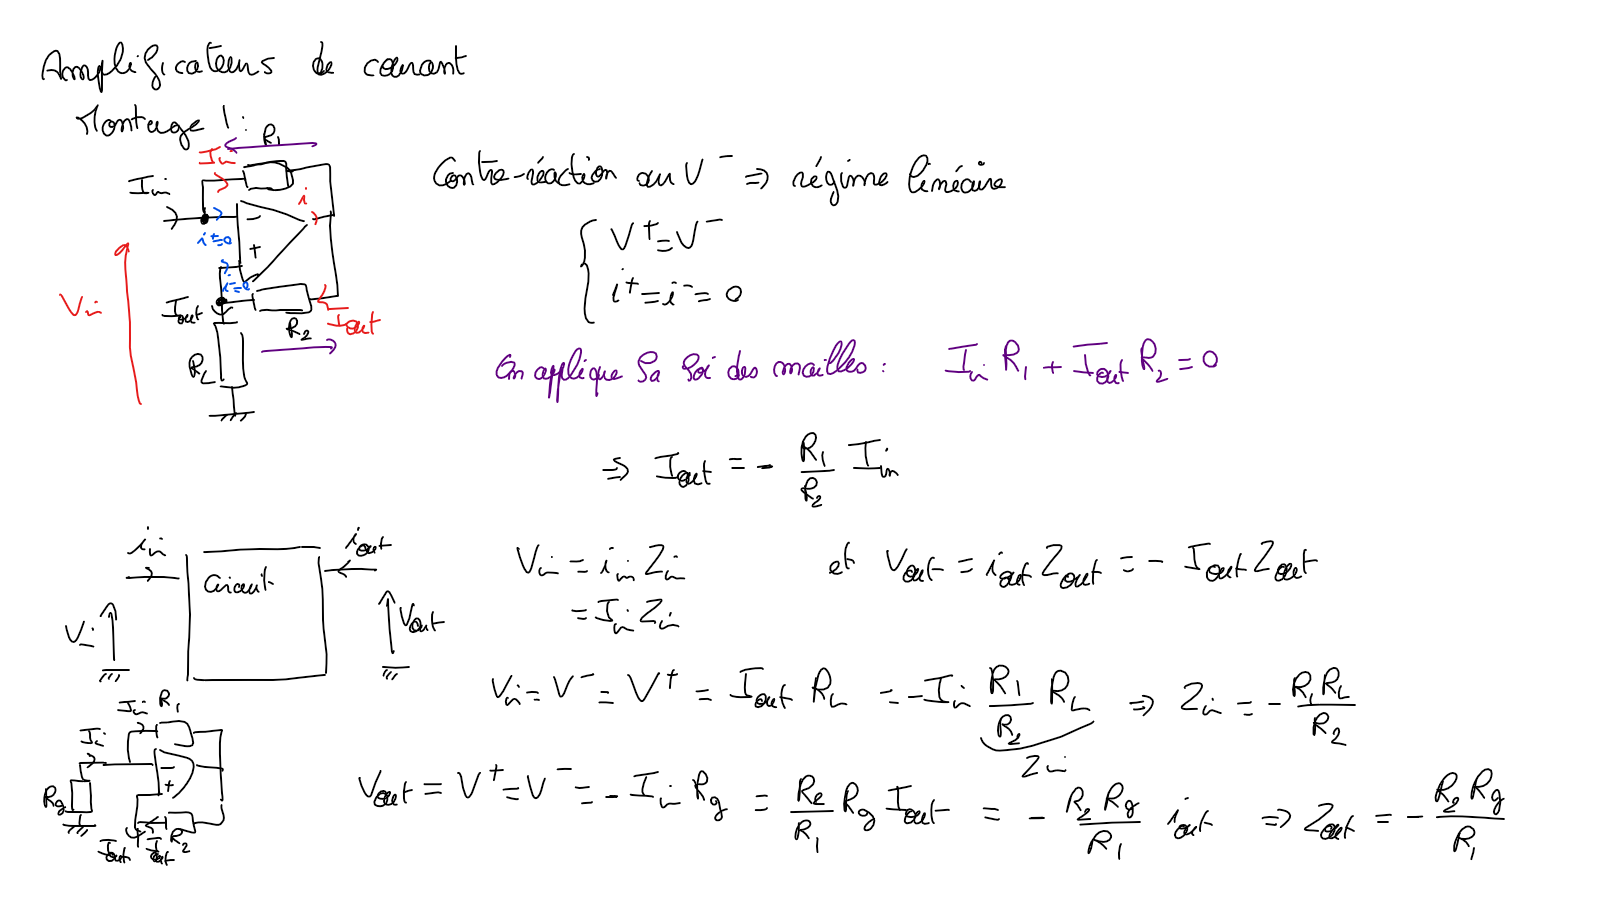 Amplificateurs de courant
Montage 1 :
R₁
I_in
I_in
i
−
i⁺=0
+
i⁻=0
V_in
I_out
R₂
I_out
R_L
Contre-réaction au V⁻ ⇒ régime linéaire
V⁺ = V⁻
i⁺ = i⁻ = 0
On applique la loi des mailles : I_in R₁ + I_out R₂ = 0
⇒ I_out = - R₁/R₂ I_in
i_in
i_out
Circuit
V_in
V_out
V_in = i_in Z_in et V_out = i_out Z_out = - I_out Z_out
= I_in Z_in
V_in = V⁻ = V⁺ = I_out R_L = - I_in R₁/R₂ R_L ⇒ Z_in = - R₁R_L/R₂
Z_in
I_in R₁
I_in
−
+
R_g
R₂
I_out I_out
V_out = V⁺ = V⁻ = - I_in R_g = R₂/R₁ R_g I_out = - R₂ R_g/R₁ i_out ⇒ Z_out = - R₂ R_g/R₁